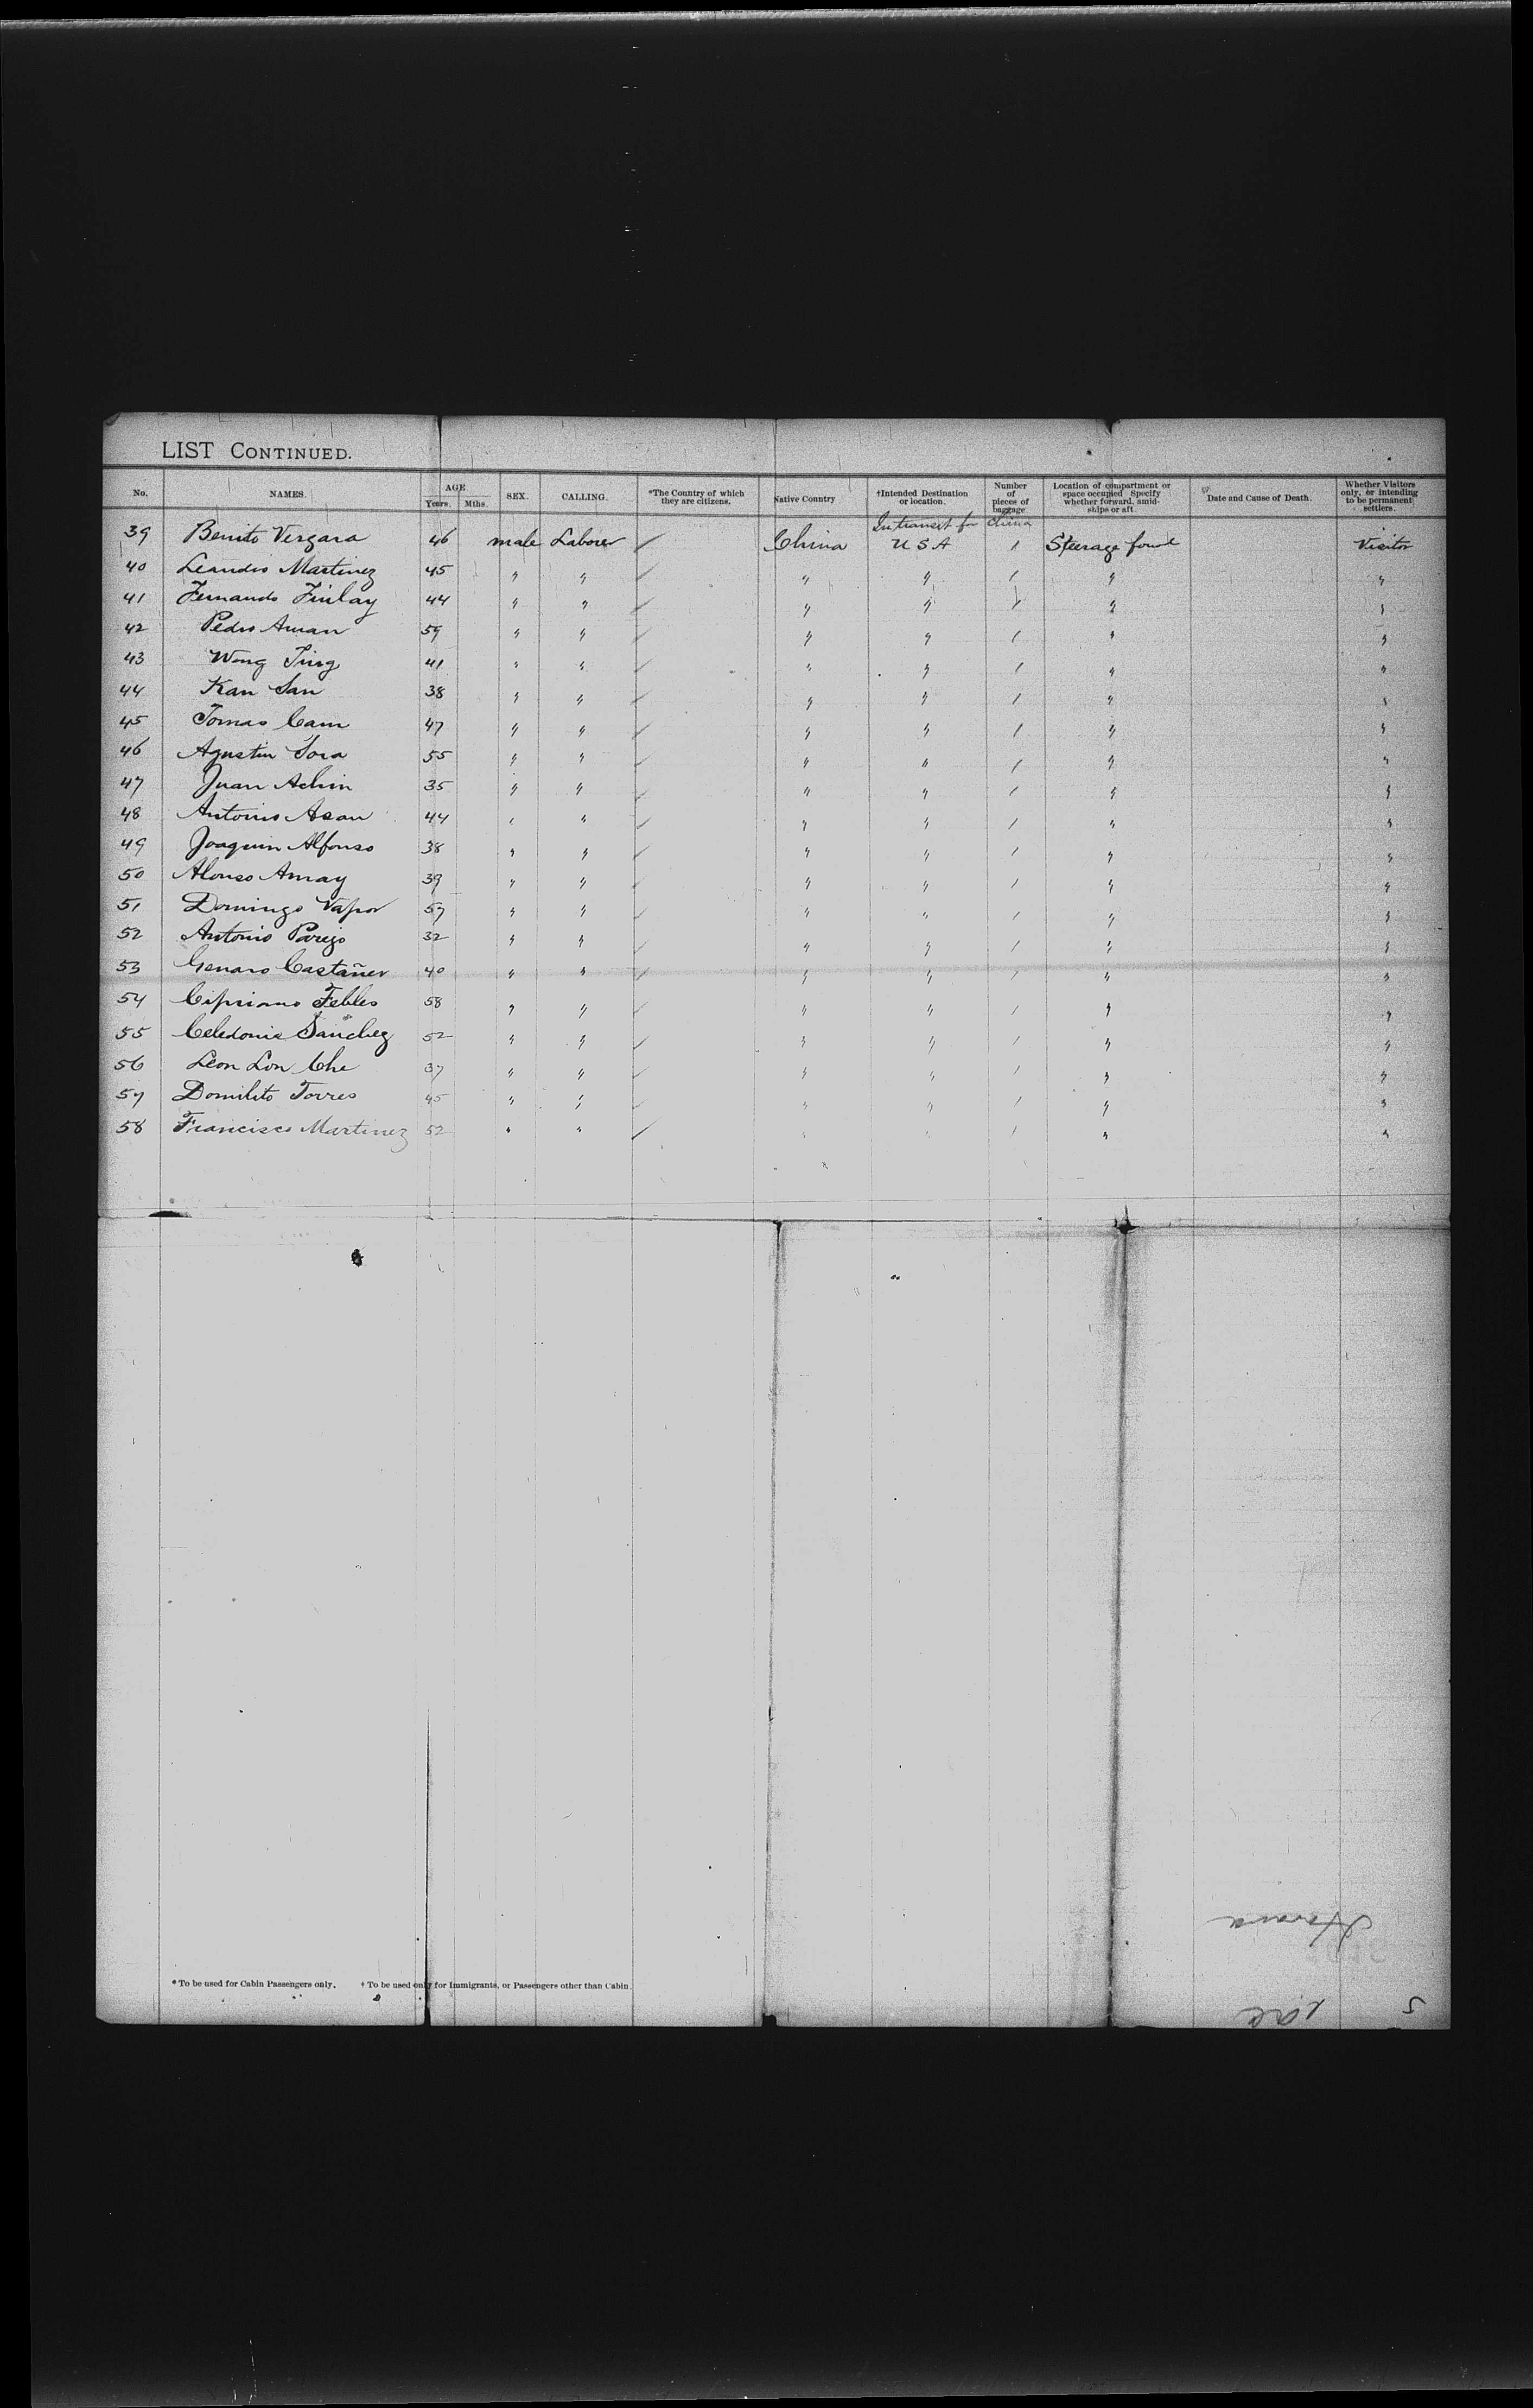 LIST CONTINUED.
No. NAMES. AGE Years. Mths. SEX. CALLING. *The Country of which they are citizens. Native Country †Intended Destination or location. Number of pieces of baggage Location of compartment or space occupied Specify whether forward, amid-ships or aft. Date and Cause of Death. Whether Visitors only, or intending to be permanent settlers.
In transit for China
39 Benito Vergara 46 male Laborer ✓ China U S A 1 Steerage forwd Visitor
40 Leandro Martinez 45 " " ✓ " " 1 " "
41 Fernando Finlay 44 " " ✓ " " 1 " "
42 Pedro Aman 59 " " ✓ " " 1 " "
43 Wong Ting 41 " " ✓ " " 1 " "
44 Kan San 38 " " ✓ " " 1 " "
45 Tomas Cam 47 " " ✓ " " 1 " "
46 Agustin Sora 55 " " ✓ " " 1 " "
47 Juan Achin 35 " " ✓ " " 1 " "
48 Antonio Asan 44 " " ✓ " " 1 " "
49 Joaquin Alfonso 38 " " ✓ " " 1 " "
50 Alonso Amay 39 " " ✓ " " 1 " "
51 Domingo Vapor 57 " " ✓ " " 1 " "
52 Antonio Parejo 32 " " ✓ " " 1 " "
53 Genaro Castañer 40 " " ✓ " " 1 " "
54 Cipriano Febles 58 " " ✓ " " 1 " "
55 Celedonio Sanchez 52 " " ✓ " " 1 " "
56 Leon Lon Che 37 " " ✓ " " 1 " "
57 Domilito Torres 45 " " ✓ " " 1 " "
58 Francisco Martinez 52 " " ✓ " " 1 " "
Havana
* To be used for Cabin Passengers only. † To be used only for Immigrants, or Passengers other than Cabin.